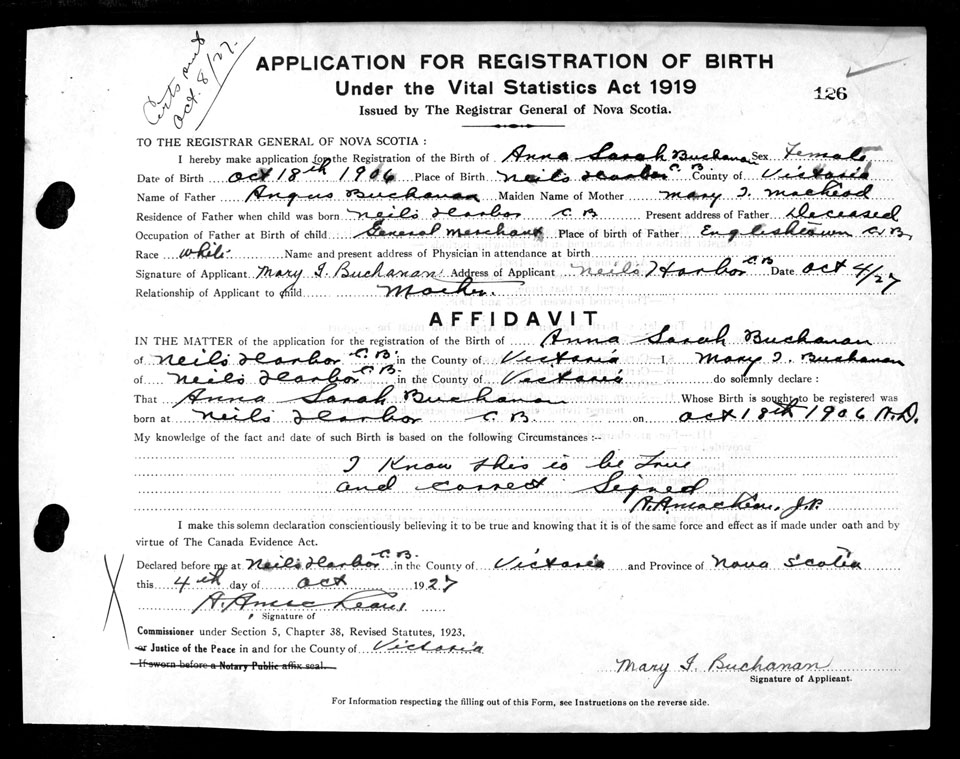 Certs sent
Oct. 8/27.
APPLICATION FOR REGISTRATION OF BIRTH
Under the Vital Statistics Act 1919
126
Issued by The Registrar General of Nova Scotia.
TO THE REGISTRAR GENERAL OF NOVA SCOTIA :
I hereby make application for the Registration of the Birth of Anna Sarah Buchanan Sex Female
Date of Birth Oct 18th 1906 Place of Birth Neils Harbor C.B. County of Victoria
Name of Father Angus Buchanan Maiden Name of Mother Mary I. MacLeod
Residence of Father when child was born Neils Harbor C B Present address of Father Deceased
Occupation of Father at Birth of child General Merchant Place of birth of Father Englishtown C.B.
Race white Name and present address of Physician in attendance at birth
Signature of Applicant Mary I. Buchanan Address of Applicant Neils Harbor C B Date Oct 4/27
Relationship of Applicant to child Mother.
AFFIDAVIT
IN THE MATTER of the application for the registration of the Birth of Anna Sarah Buchanan
of Neils Harbor C.B. in the County of Victoria I, Mary I. Buchanan
of Neils Harbor C.B. in the County of Victoria do solemnly declare :
That Anna Sarah Buchanan Whose Birth is sought to be registered was
born at Neils Harbor C.B. on Oct 18th 1906 A.D.
My knowledge of the fact and date of such Birth is based on the following Circumstances :--
I know this is be True
and correct Signed
J.P.
I make this solemn declaration conscientiously believing it to be true and knowing that it is of the same force and effect as if made under oath and by
virtue of The Canada Evidence Act.
Declared before me at Neils Harbor C.B. in the County of Victoria and Province of Nova Scotia
this 4th day of Oct 1927
Signature of
Commissioner under Section 5, Chapter 38, Revised Statutes, 1923,
or Justice of the Peace in and for the County of Victoria
If sworn before a Notary Public affix seal.
Mary I. Buchanan
Signature of Applicant.
For Information respecting the filling out of this Form, see Instructions on the reverse side.